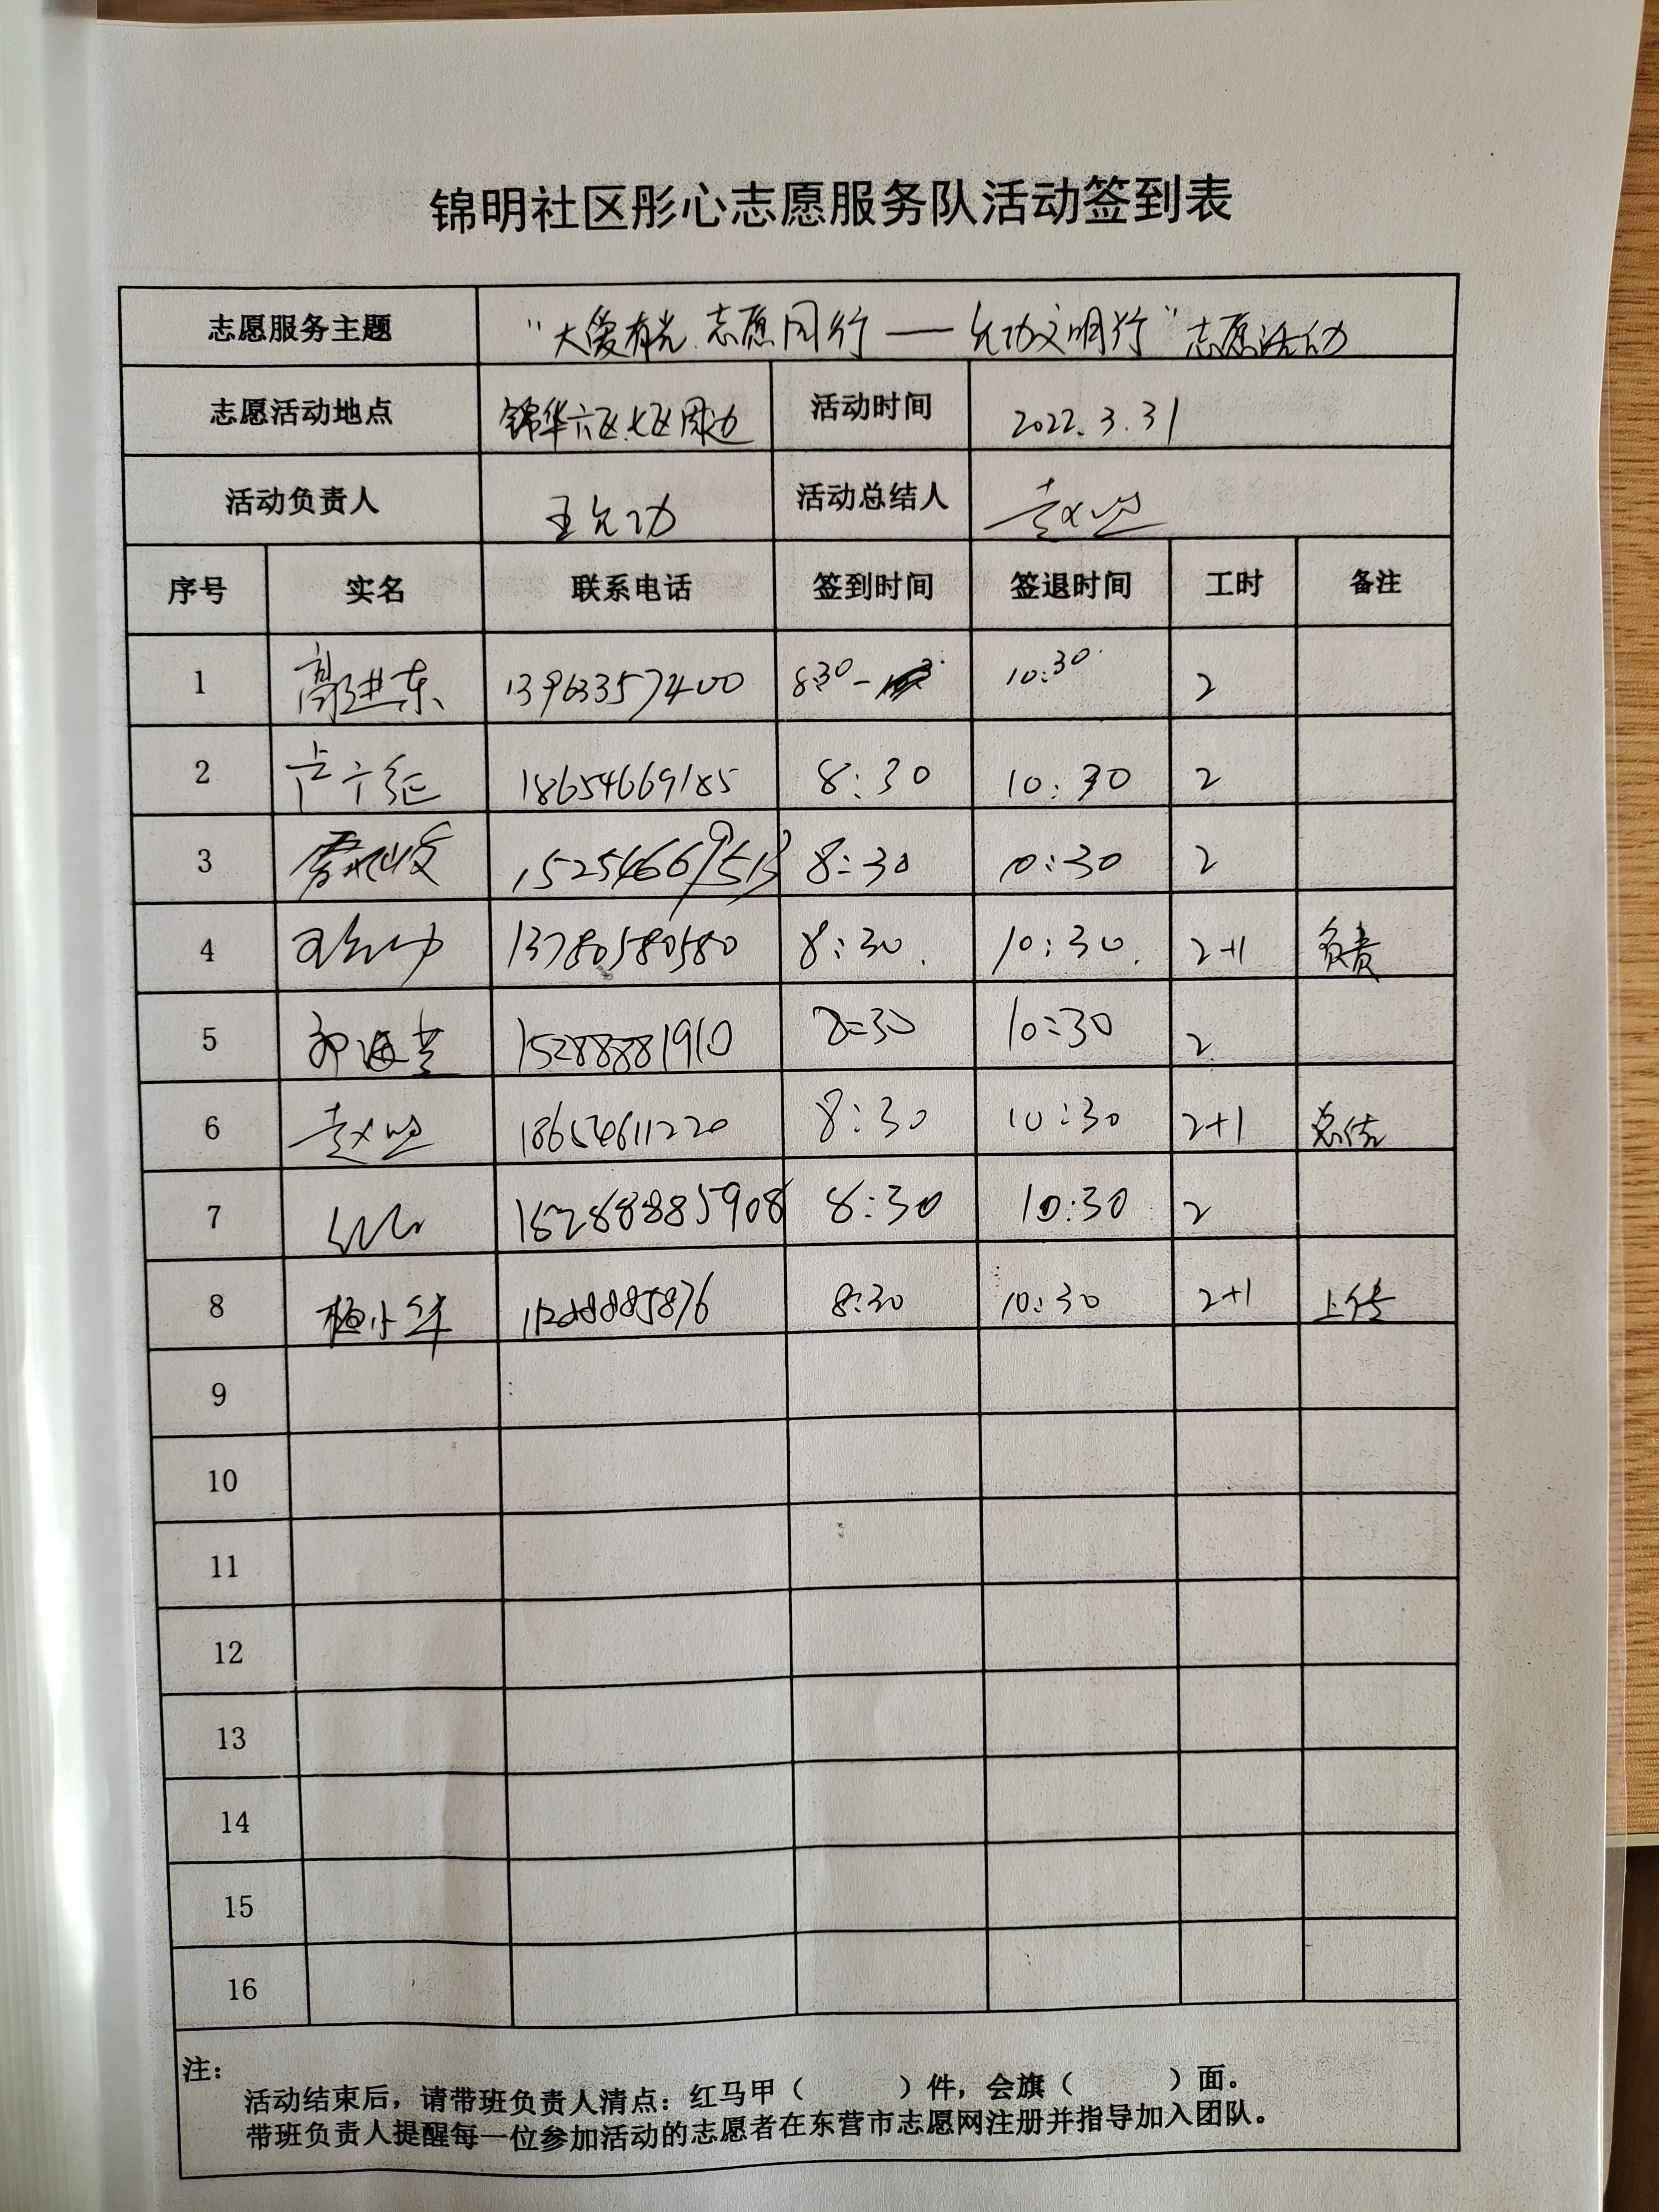 锦明社区彤心志愿服务队活动签到表
志愿服务主题 “大爱有光 志愿同行——允功文明行”志愿活动
志愿活动地点 锦华六区、七区周边 活动时间 2022.3.31
活动负责人 王允功 活动总结人
序号 实名 联系电话 签到时间 签退时间 工时 备注
1 高进东 13963357400 8:30- 10:30 2
2 18654669185 8:30 10:30 2
3 8:30 10:30 2
4 王允功 13780580580 8:30. 10:30. 2+1 负责
5 15288881910 8:30 10:30 2
6 18654611220 8:30 10:30 2+1 总结
7 8:30 10:30 2
8 8:30 10:30 2+1 上传
9
10
11
12
13
14
15
16
注：
活动结束后，请带班负责人清点：红马甲（ ）件，会旗（ ）面。
带班负责人提醒每一位参加活动的志愿者在东营市志愿网注册并指导加入团队。